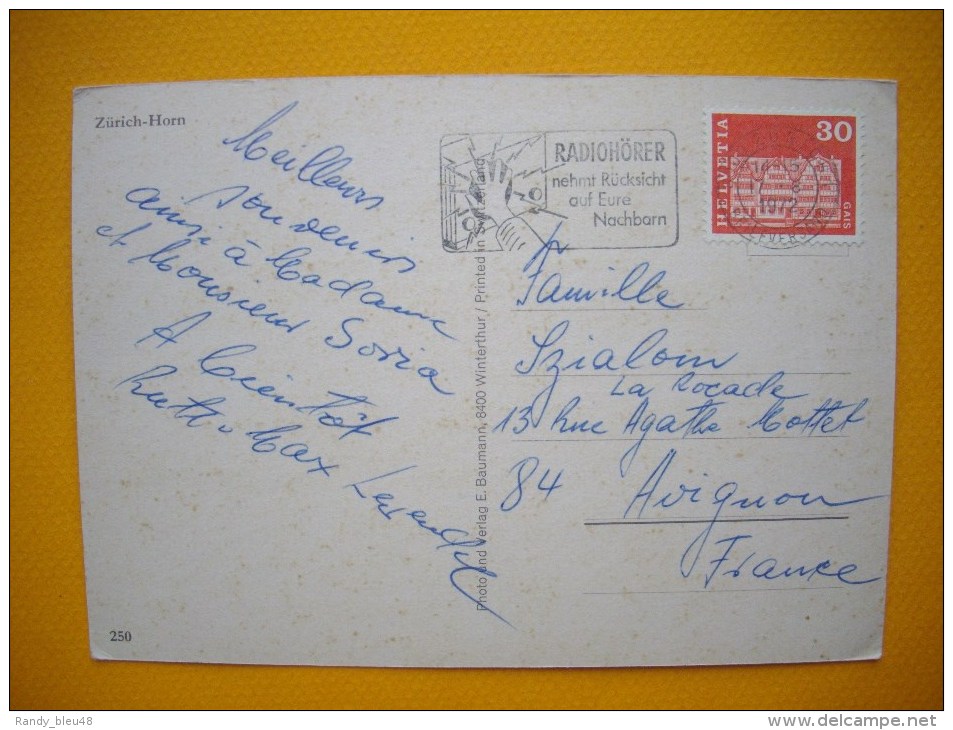 Zürich-Horn
Meilleurs
souvenirs
ainsi à Madame
et Monsieur Soria
A bientôt
Ruth + Max
250
Photo und Verlag E. Baumann, 8400 Winterthur / Printed in Switzerland
RADIOHÖRER
nehmt Rücksicht
auf Eure
Nachbarn
HELVETIA
30
GAIS
1972
Famille
Szialom
La Rocade
13 Rue Agathe Mottet
84 Avignon
France
Randy_bleu48
delcampe.net